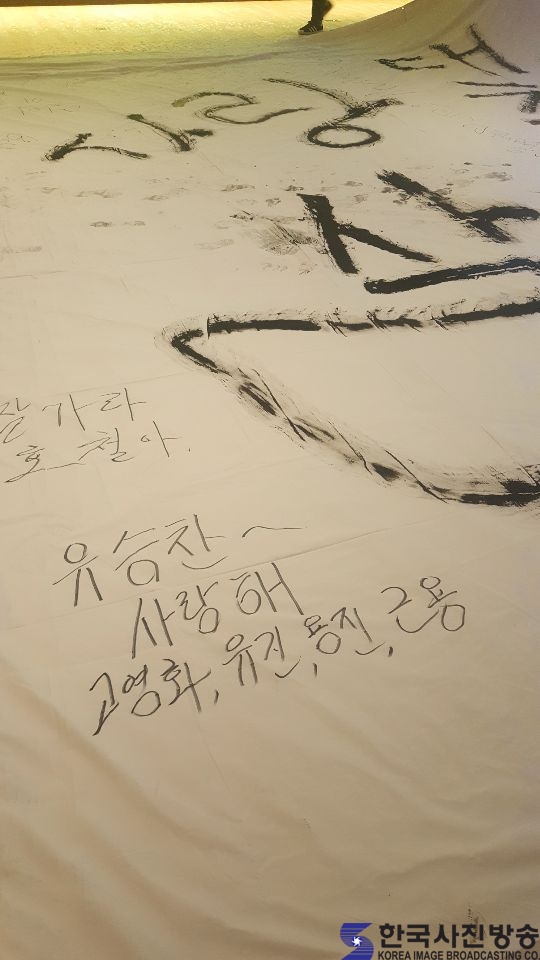 사랑해
잘 가라
호철아.
유승찬~
사랑해
고영화, 유진, 용진, 근용
한국사진방송
KOREA IMAGE BROADCASTING CO.